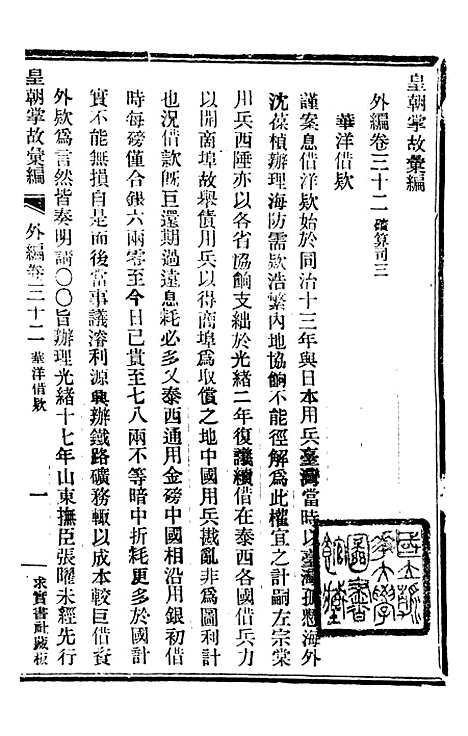 皇朝掌故彙編
外編卷三十二 度算司三
華洋借欵
謹案息借洋欵始於同治十三年與日本用兵臺灣當時以臺灣孤懸海外
沈葆楨辦理海防需欵浩繁內地協餉不能徑解爲此權宜之計嗣左宗棠
用兵西陲亦以各省協餉支絀於光緒二年復議續借在泰西各國借兵力
以開商埠故舉債用兵以得商埠爲取償之地中國用兵戡亂非爲圖利
也況借款旣巨還期過遠息耗必多又泰西通用金磅中國相沿用銀初借
時每磅僅合銀六兩零至今日已貴至七八兩不等暗中折耗更多於國計
實不能無損自是而後當事議濬利源興辦鐵路礦務輒以成本較巨借資
外欵爲言然皆奏明請〇〇旨辦理光緒十七年山東撫臣張曜未經先行
皇朝掌故彙編 外編卷三十二 華洋借欵 一 求實書社藏板
國立北
平大學
圖書
館藏